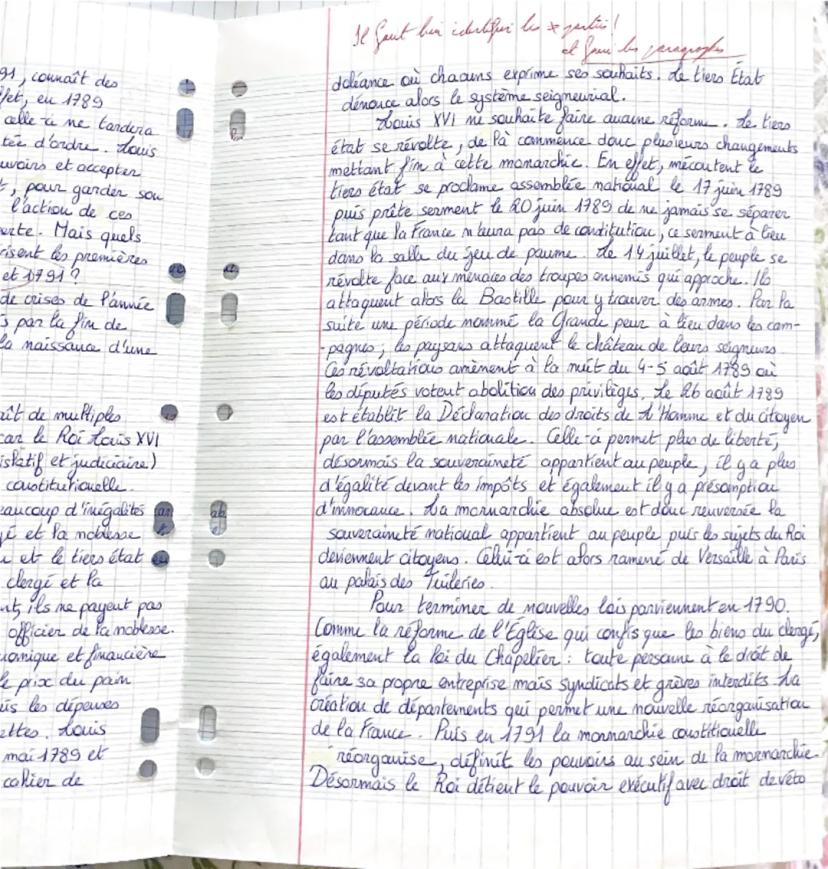 91, connaît des
fet, en 1789
celle-ci ne tardera
tée d'ordre. Louis
uvoirs et accepter
, pour garder son
l'action de ces
erte. Mais quels
risent les premières
et 1791 ?
de crises de l'année
s par la fin de
la naissance d'une
ît de multiples
car le Roi Louis XVI
islatif et judiciaire)
constitutionelle.
eaucoup d'inégalités
gé et la noblesse
u et le tiers état
clergé et la
nt, ils ne payent pas
officier de la noblesse.
nomique et financière
le prix du pain
uis les dépenses
ettes. Louis
mai 1789 et
cahier de
Il faut bien identifier les parties !
et faire les paragraphes
doléance où chacuns exprime ses souhaits. Le tiers État
dénonce alors le système seigneurial.
Louis XVI ne souhaite faire aucune réforme. Le tiers
état se révolte, de là commence donc plusieurs changements
mettant fin à cette monarchie. En effet, mécoutent le
tiers état se proclame assemblée national le 17 juin 1789
puis prête serment le 20 juin 1789 de ne jamais se séparer
tant que la France n'aura pas de constitution, ce serment à lieu
dans la salle du jeu de paume. Le 14 juillet, le peuple se
révolte face aux menaces des troupes ennemis qui approche. Ils
attaquent alors la Bastille pour y trouver des armes. Par la
suite une période nommé la Grande peur à lieu dans les cam-
-pagnes, les paysans attaquent le château de leurs seigneurs.
Ces révoltations amènent à la nuit du 4-5 août 1789 où
les députés votent abolition des privilèges. Le 26 août 1789
est établit la Déclaration des droits de l'Homme et du citoyen
par l'assemblée nationale. Celle-ci permet plus de liberté,
désormais la souveraineté appartient au peuple, il y a plus
d'égalité devant les impôts et également il y a présomption
d'innocance. La monnarchie absolue est donc renversée la
souveraineté national appartient au peuple puis les sujets du Roi
deviennent citoyens. Celui-ci est alors ramené de Versaille à Paris
au palais des Tuileries.
Pour terminer de nouvelles lois parviennent en 1790.
Comme la réforme de l'Église qui confisque les biens du clergé,
également la loi du Chapelier : toute personne à le droit de
faire sa propre entreprise mais syndicats et grèves interdits. La
création de départements qui permet une nouvelle réorganisation
de la France. Puis en 1791 la monnarchie constitionelle
réorganise, définit les pouvoirs au sein de la monnarchie.
Désormais le Roi détient le pouvoir exécutif avec droit de véto